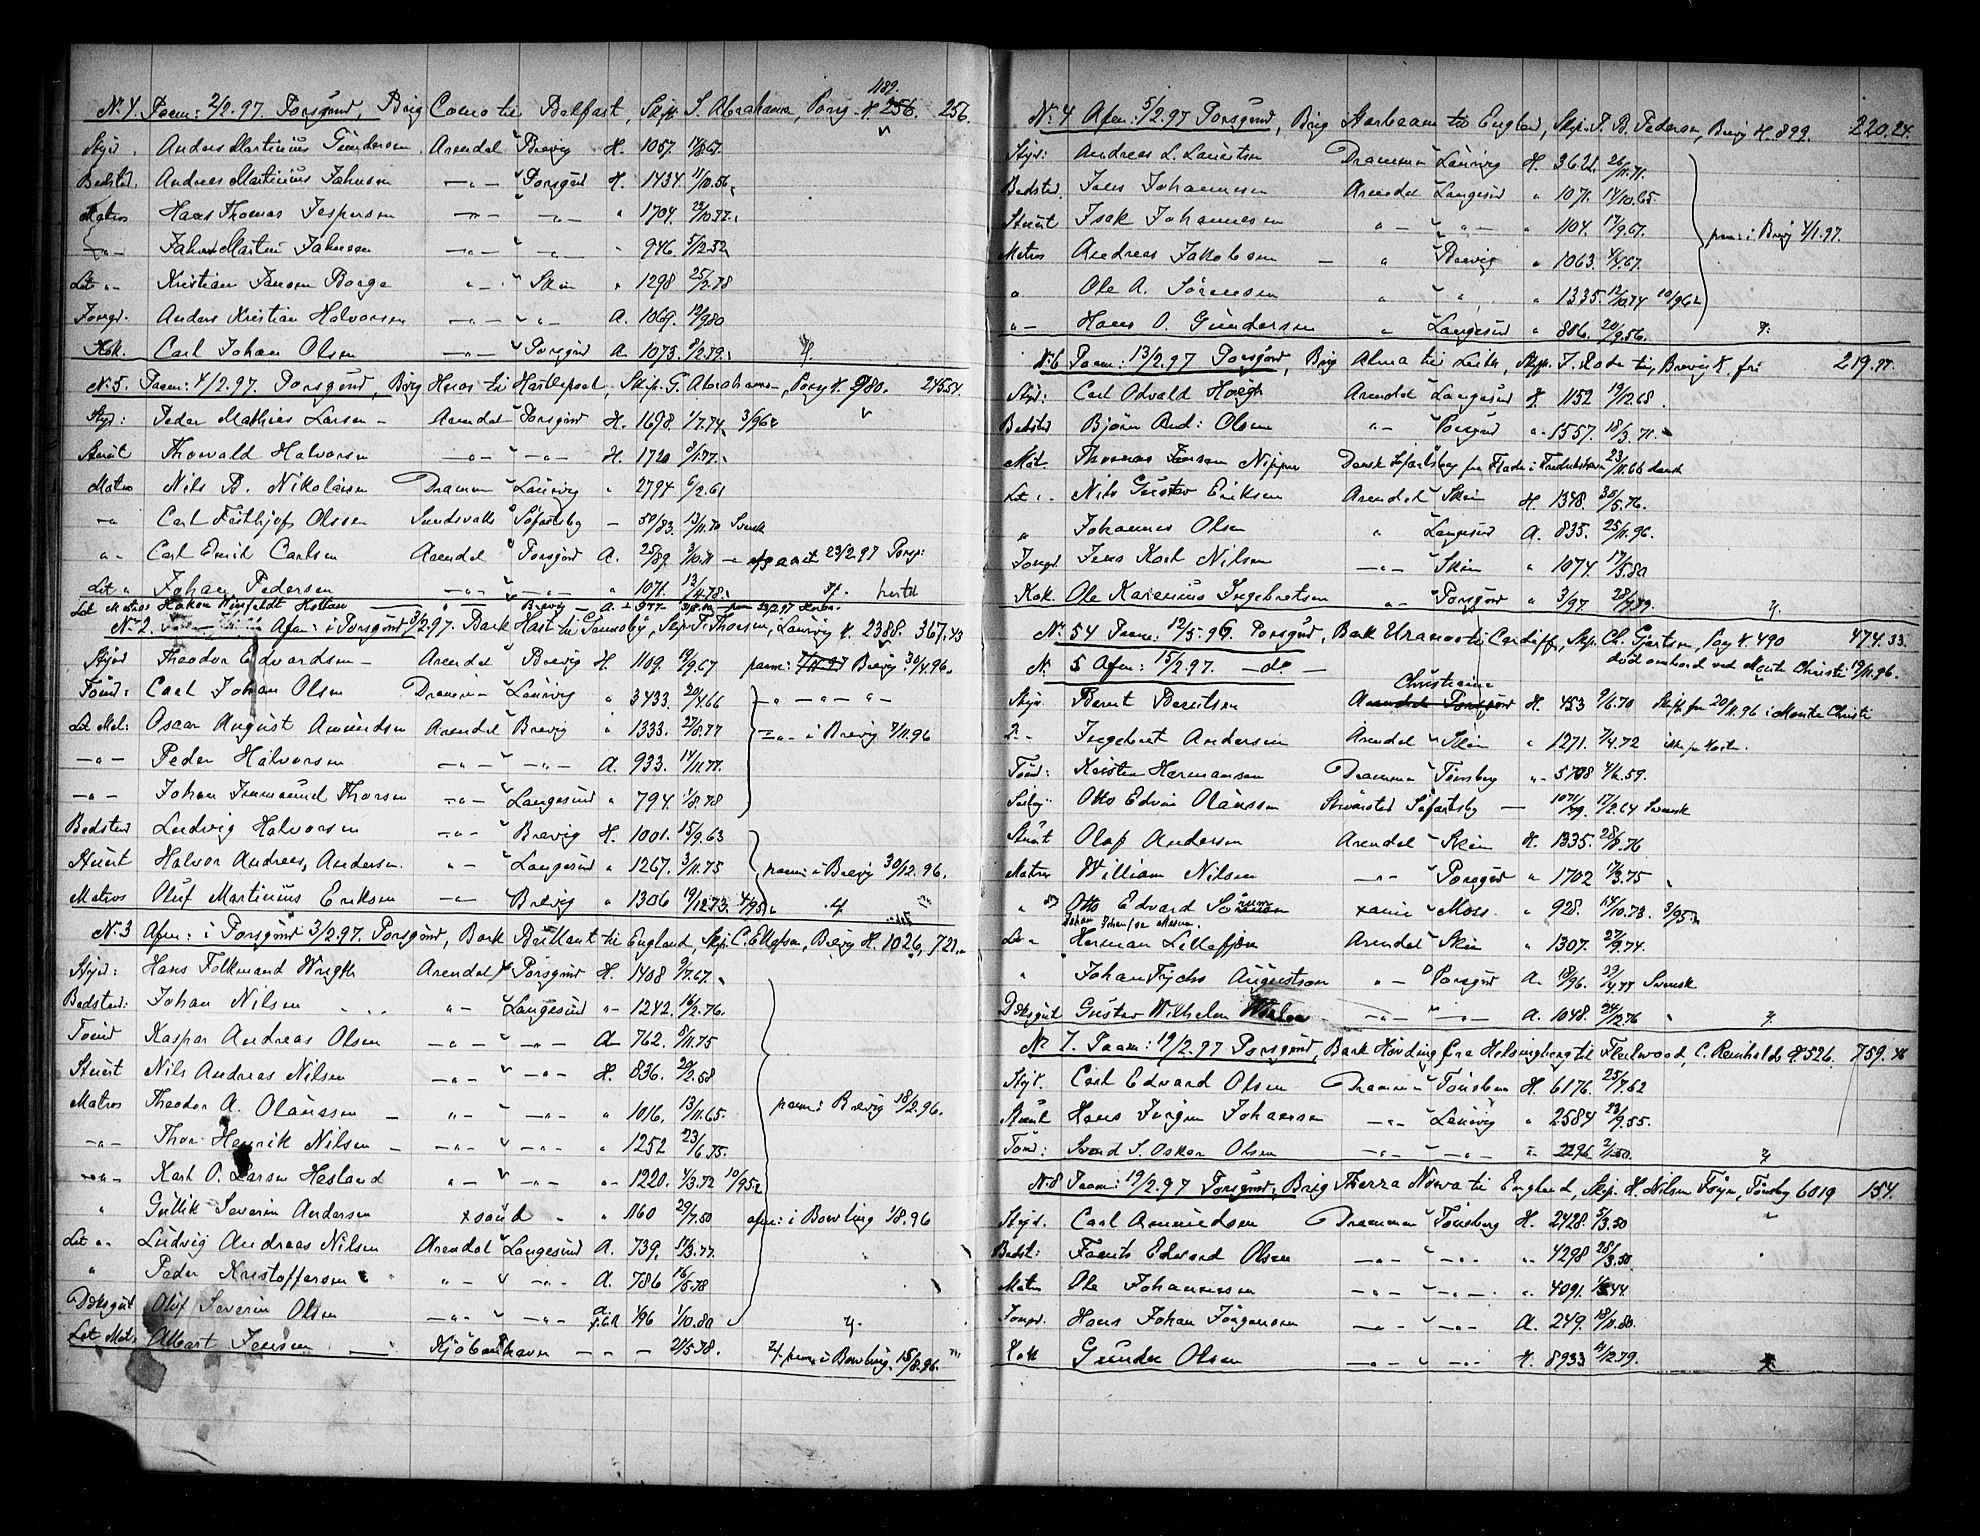 1189.
N. 4. Paam: 2/2.97. Porsgrund, Brig Como til Belfast, Skip. S. Abrahams, Porsg. H 256. 256.
Styrd. Anders Martinius Gundersen Arendal Brevig H. 1057. 14/8.67.
Bedstd. Andreas Martinius Jahnsen — " — Porsgrd H. 1434. 11/10.56
Matros Hans Thomas Jespersen — " — — " — " 1704. 22/10.77.
— " — Jahn Martin Jahnsen — " — — " — " 946. 5/12.52
Let " - Kristian Jansen Borge " - Skien " 1298 25/2.78
Jomgd. Anders Kristian Halvorsen — " — " - A. 1069. 12/9.80
Kok. Carl Johan Olsen — " — Porsgrd A. 1073. 8/2.79.
N. 5. Paam: 4/2.97. Porsgrund, Brig Huos til Hartlepool, Skip. G. Abrahams—, Porsg H. 980. 245.54.
Styr: Peder Mathias Larsen - Arendal Porsgrd H. 1698. 1/7.74. 3/96
Stuut Thorvald Halvorsen — " — — " — H. 1720 3/1.77.
Matros Nils B. Nikolaisen Drammen Laurvig " 2794 6/2.61
— " Carl Feithjof Olsson Sundsvalls Søfartsby — 50/83. 13/11.70 Svensk
" - Carl Emil Carlsen Arendal Porsgrd A. 25/89. 3/10.71 — 23/2.97 Porsg:
Let " Johan Pedersen — " — — " — 1071. 13/4.78. hertil
Let Matros Hakon Winfeldt Hottan — " Brevig — A. 977. — paam 23/2.97
N. 2. Afm: i Porsgrund 3/2.97. Bark Hast til Grimsby, Skip. F. Thorsen, Laurvig H. 2388. 367.43
Styrd Theodor Edvardsen - Arendal Brevig H. 1109. 19/9.67 paam: Brevig 30/1.96.
Tømd: Carl Johan Olsen Drammen Laurvig " 3433. 20/4.66 — " — " — "
Let Mat: Oscar August Amundsen Arendal Brevig " 1333. 27/8.77 — " - i Brevig 7/11.96
— " — Peder Halvorsen — " — — " — A. 933. 14/11.77.
— " — Johan Immanuel Thorsen — " — Langesund " 794. 1/8.78
Bedstend Ludvig Halvorsen — " — Brevig H. 1001. 15/9.63
Stuert Halvor Andreas Andersen. " — Langesund " 1267. 3/11.75 paam: i Brevig 30/12.96.
Matros Oluf Martinius Eriksen — " — Brevig " 1306 19/12.73. 4/95
N. 3 Afm: i Porsgrund 3/2.97. Porsgrund, Bark Brillant til England, Skip. C. Ellefsen, Brevig H. 1026, 721.
Styrd: Hans Folkmand Wrigth Arendal Porsgrd H. 1408 9/7.67.
Bedstd: Johan Nilsen " - Langesund " 1242. 16/2.76.
Tømd Kaspar Andreas Olsen — " — — " — A 762. 5/11.75
Stuert Nils Andreas Nilsen — " — — " — H. 836. 29/2.58
Matros Theodor A. Olaussen — " - — " — " 1016. 13/11.65. paam: i Brevig 18/2.96.
— " — Thor Henrik Nilsen — — " - — " — " 1252 23/6.75.
— " — Karl O. Larsen Hesland " — " - 1220. 4/3.72 10/95
" Gullik Severin Andersen xsaud " " 1160 29/7.50 afm: i Bowling 1/8.96
Let " - Ludvig Andreas Nilsen Arendal Langesund A. 739. 14/3.77.
" Peder Kristoffersen " - — " — A. 786 16/5.78
Dæksgut Oluf Severin Olsen — " - — " — 1/96 1/10.80
Let Mat. Albart Jensen — Kjøbenhavn — — — 21/5.78. paam: i Bowling. 15/8.96.
N. 4 Afm: 5/2.97 Porsgrund, Brig Aarbaam til England, Skip. P. B. Pedersen, Brevig H. 899. 220.24.
Styr: Andreas L. Lauritsen Drammen Laurvig H. 3621. 26/11.71.
Bedstd. Jens Johannesen Arendal Langesund " 1071. 14/10.65.
Stuut Isak Johannesen " — — " — " 1104. 17/9.67. paam: i Brevig 4/1.97.
Matros Andreas Jakobsen — " Brevig " 1063. 4/4.67.
" Ole A. Sørensen " " " 1335. 12/10.74 10/96
" - Hans O. Gundersen " Langesund " 886. 20/9.56.
N. 6 Paam: 13/2.97 Porsgrund, Brig Alma til Leith, Skip. J. Rode til, Brevig H. fri 219.97.
Styr: Carl Odvald Høegh Arendal Langesund H. 1152 19/12.68.
Bedstd Bjørn And: Olsen " - Porsgrd " - 1557. 18/3.71.
Mat. Thomas Jensen Nipper Dansk Søfartsbog fra Flade i Fredrikshavn 23/11.66 dansk
Let " . Nils Gustav Eriksen Arendal Skien H. 1348. 30/5.76.
" Johannes Olsen " Langesund A. 835. 25/11.96.
Jomgd. Jens Karl Nilsen — " — Skien " 1074. 17/5.80
Kok. Ole Karenius Ingebretsen " - Porsgrd " 3/97. 28/7.79.
N. 54 Paam: 12/5.96. Porsgrund, Bark Uranos til Cardiff, Skip. Ch. Gjertsen, Porsg H. 490 474.33.
død ombord ved Monte Christi 19/11.96.
N. 5 Afm: 15/2.97. — do. —
Christiania
Styr. Bernt Berntsen Arendal Porsgrund H. 453 9/6.70 Skift fra 20/11.96 i Monte Christi
2 - Ingebret Andersen Arendal Skien " 1271. 7/4.72
Tømd: Kristen Hermansen Drammen Tønsberg " - 5708 4/6.59.
Seilm: Otto Edvin Olausson Strømstad Søfartsby — 1071/79. 17/2.64 Svensk
Stuut Olaf Andersen Arendal Skien H. 1335. 28/8.76
Matros William Nilsen — " — Porsgrd " 1702 17/3.75
" Otto Edvard Sørensen xania Moss. " 928. 14/10.73. 3/95.
Let " Herman Lillefjær Arendal Skien " 1307. 27/9.74.
" Johan Frychs Augustson " - Porsgrd A. 18/96. 29/4.77 Svensk
Dæksgut Gustav Wilhelm — " — — " — A. 1048. 24/12.76
N. 7. Paam: 19/2.97 Porsgrund, Bark Høvding fra Helsingborg til Fleetwood, C. Reinholds H. 526. 759.
Styr. Carl Edvard Olsen Drammen Tønsberg H. 6176. 25/7.62
Stuut Hans Jørgen Johansen — " — Laurvig " 2584 23/9.55.
Tømd: Svend S. Oskar Olsen — " — — " — " 2296. 2/1.50.
N. 8 Paam: 19/2.97 Porsgrund, Brig Therra Nowa til England, Skip. H. Nilsen Føyn, Tønsberg 6019 154.
Styrd. Carl Amundsen Drammen Tønsberg H. 2428. 5/3.50
Bedst: Frants Edvard Olsen — " — — " - " 4298 28/3.50.
Matr Ole Johannesen — " — — " — " 4091.
Jomgd. Hans Johan Jørgensen — " — — " — A. 249. 18/11.80.
Kok Gunder Olsen — " — — " — H. 8933 4/12.79.